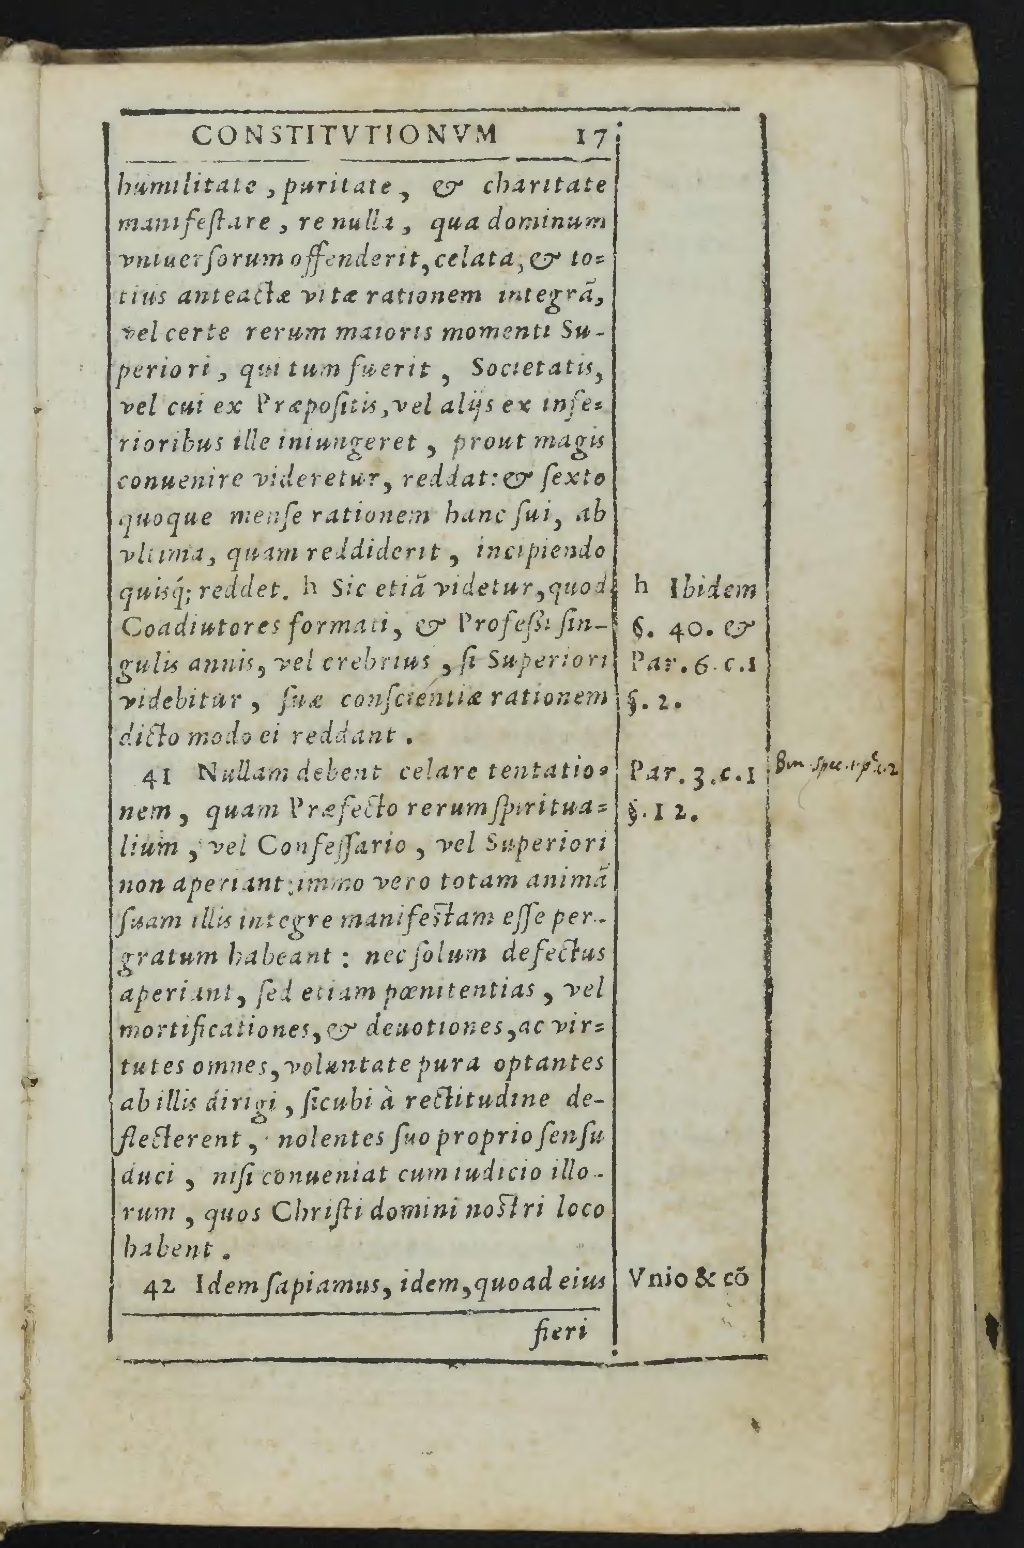 CONSTITVTIONVM 17
humilitate, puritate, & charitate
manifeſtare, re nulla, qua dominum
vniuerſorum offenderit, celata, & to=
tius anteactæ vitæ rationem integrã,
vel certe rerum maioris momenti Su-
periori, qui tum fuerit, Societatis,
vel cui ex Præpoſitis, vel alijs ex infe=
rioribus ille iniungeret, prout magis
conuenire videretur, reddat: & ſexto
quoque menſe rationem hanc ſui, ab
vltima, quam reddiderit, incipiendo
quisq́; reddet. h Sic etiã videtur, quod
Coadiutores formati, & Profeſſi ſin-
gulis annis, vel crebrius, ſi Superiori
videbitur, ſuæ conſcientiæ rationem
dicto modo ei reddant.
h Ibidem
§. 40. &
Par. 6. c. 1
§. 2.
41 Nullam debent celare tentatio=
nem, quam Præfecto rerum ſpiritua=
lium, vel Confeſſario, vel Superiori
non aperiant; immo vero totam animã
ſuam illis integre manifeſtam eſſe per-
gratum habeant: nec ſolum defectus
aperiant, ſed etiam pœnitentias, vel
mortificationes, & deuotiones, ac vir=
tutes omnes, voluntate pura optantes
ab illis dirigi, ſicubi à rectitudine de-
flecterent, nolentes ſuo proprio ſenſu
duci, niſi conueniat cum iudicio illo-
rum, quos Chriſti domini noſtri loco
habent.
Par. 3. c. 1
§. 12.
42 Idem ſapiamus, idem, quoad eius
Vnio & cõ
fieri